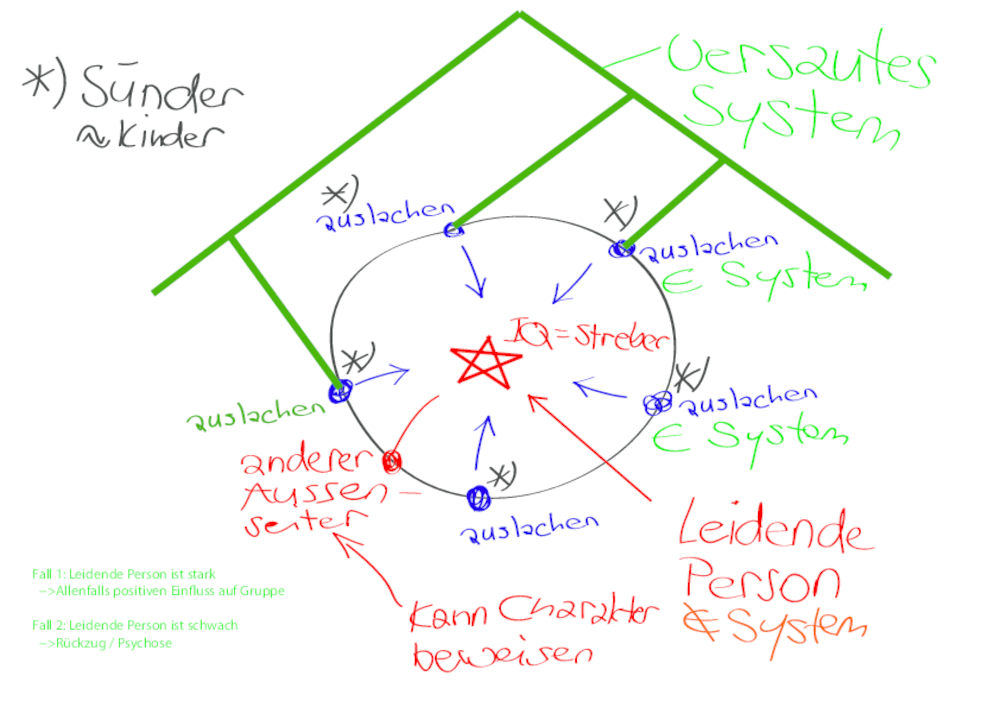 *) Sünder
≈ Kinder
versautes
System
*)
auslachen
*)
auslachen
∈ System
IQ = Streber
*)
auslachen
*)
auslachen
∈ System
anderer
Aussen-
seiter
*)
auslachen
Leidende
Person
∉ System
Fall 1: Leidende Person ist stark
-->Allenfalls positiven Einfluss auf Gruppe
Fall 2: Leidende Person ist schwach
-->Rückzug / Psychose
Kann Charakter
beweisen